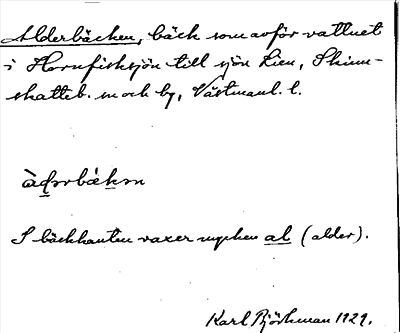 Alderbäcken, bäck som avför vattnet
i Hornfisksjön till sjön Lien, Skinn-
skatteb. sn och bg, Västmanl. l.
àḍərbǽkən
I bäckkanten vaxer mycken al (alder).
Karl Björkman 1929.